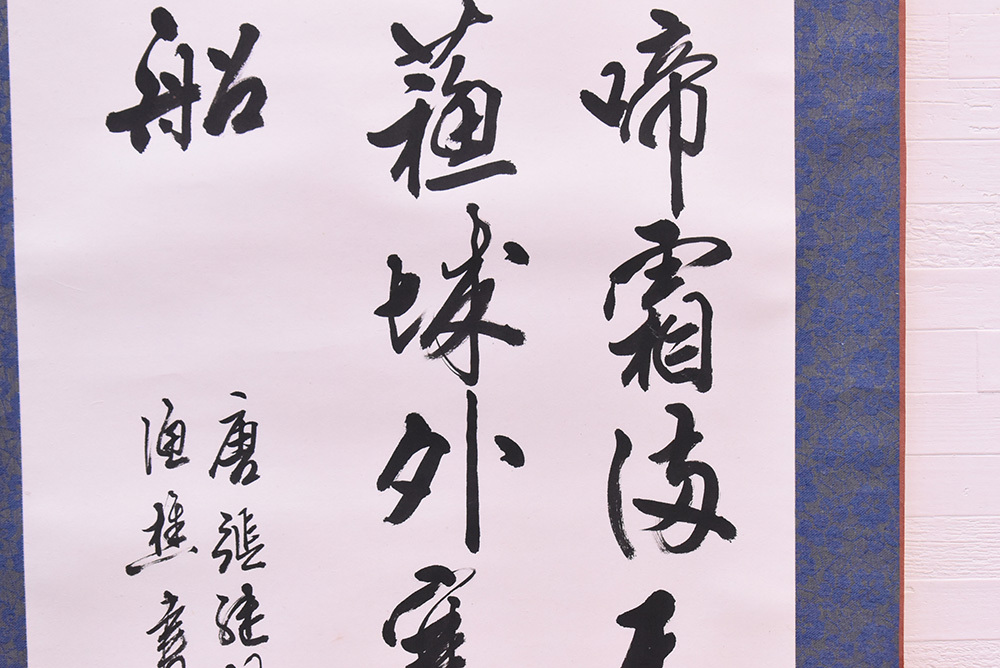 啼霜满天
蘓城外寒
船
唐張継
漁樵書